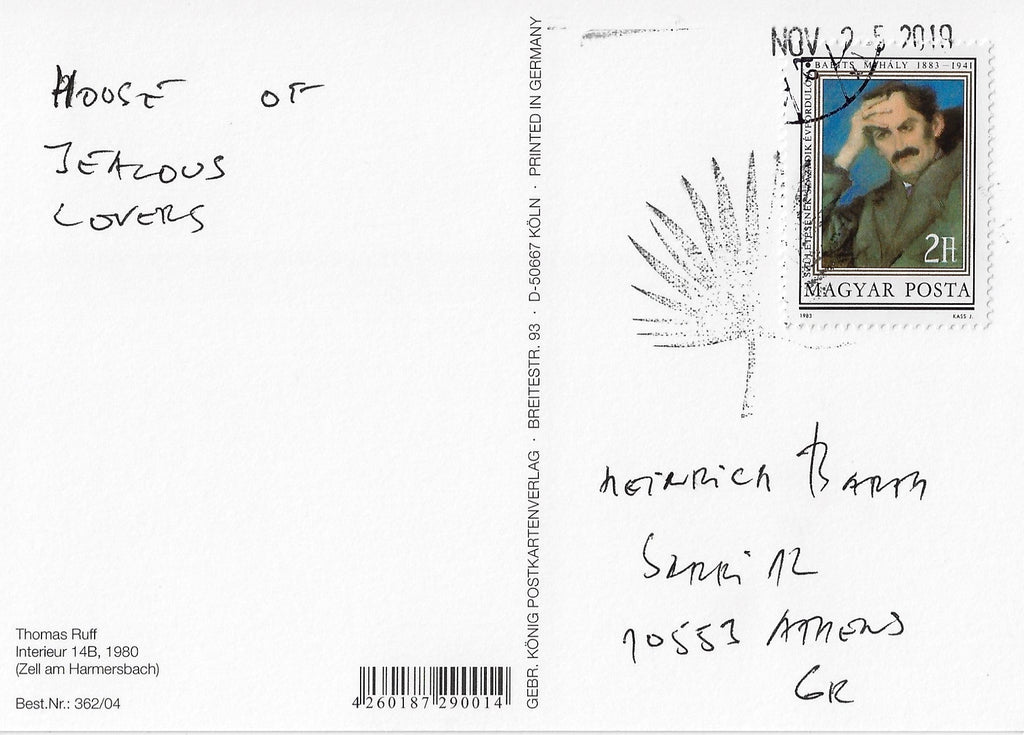 HOUSE OF
JEALOUS
LOVERS
Thomas Ruff
Interieur 14B, 1980
(Zell am Harmersbach)
Best.Nr.: 362/04
4 260187 290014
GEBR. KÖNIG POSTKARTENVERLAG · BREITESTR. 93 · D-50667 KÖLN · PRINTED IN GERMANY
NOV 25 2019
BABITS MIHÁLY 1883–1941
SZÜLETÉSÉNEK SZÁZADIK ÉVFORDULÓJA
2Ft
MAGYAR POSTA
1983 KASS J.
HEINRICH BARTH
SARRI 12
10553 ATHENS
GR